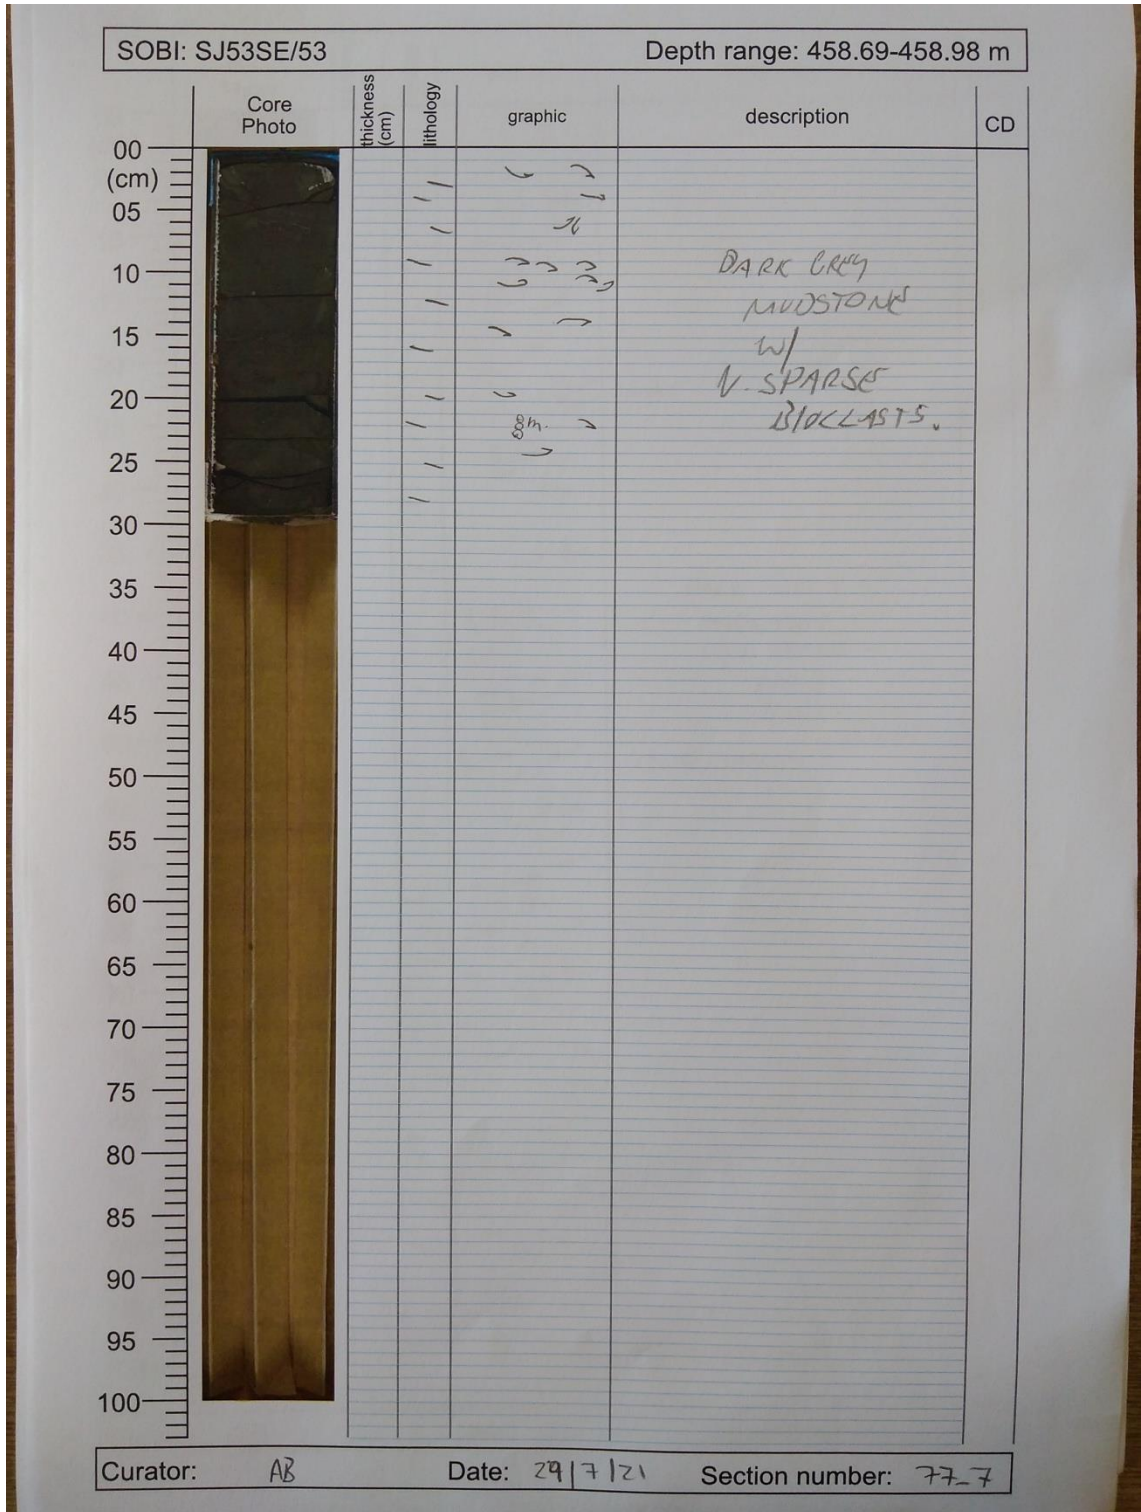 SOBI: SJ53SE/53 Depth range: 458.69-458.98 m
Core Photo thickness (cm) lithology graphic description CD
00
(cm)
05
10
15
20
25
30
35
40
45
50
55
60
65
70
75
80
85
90
95
100
DARK GREY
MUDSTONE
W/
V. SPARSE
BIOCLASTS.
m.
Curator: AB Date: 29/7/21 Section number: 77_7